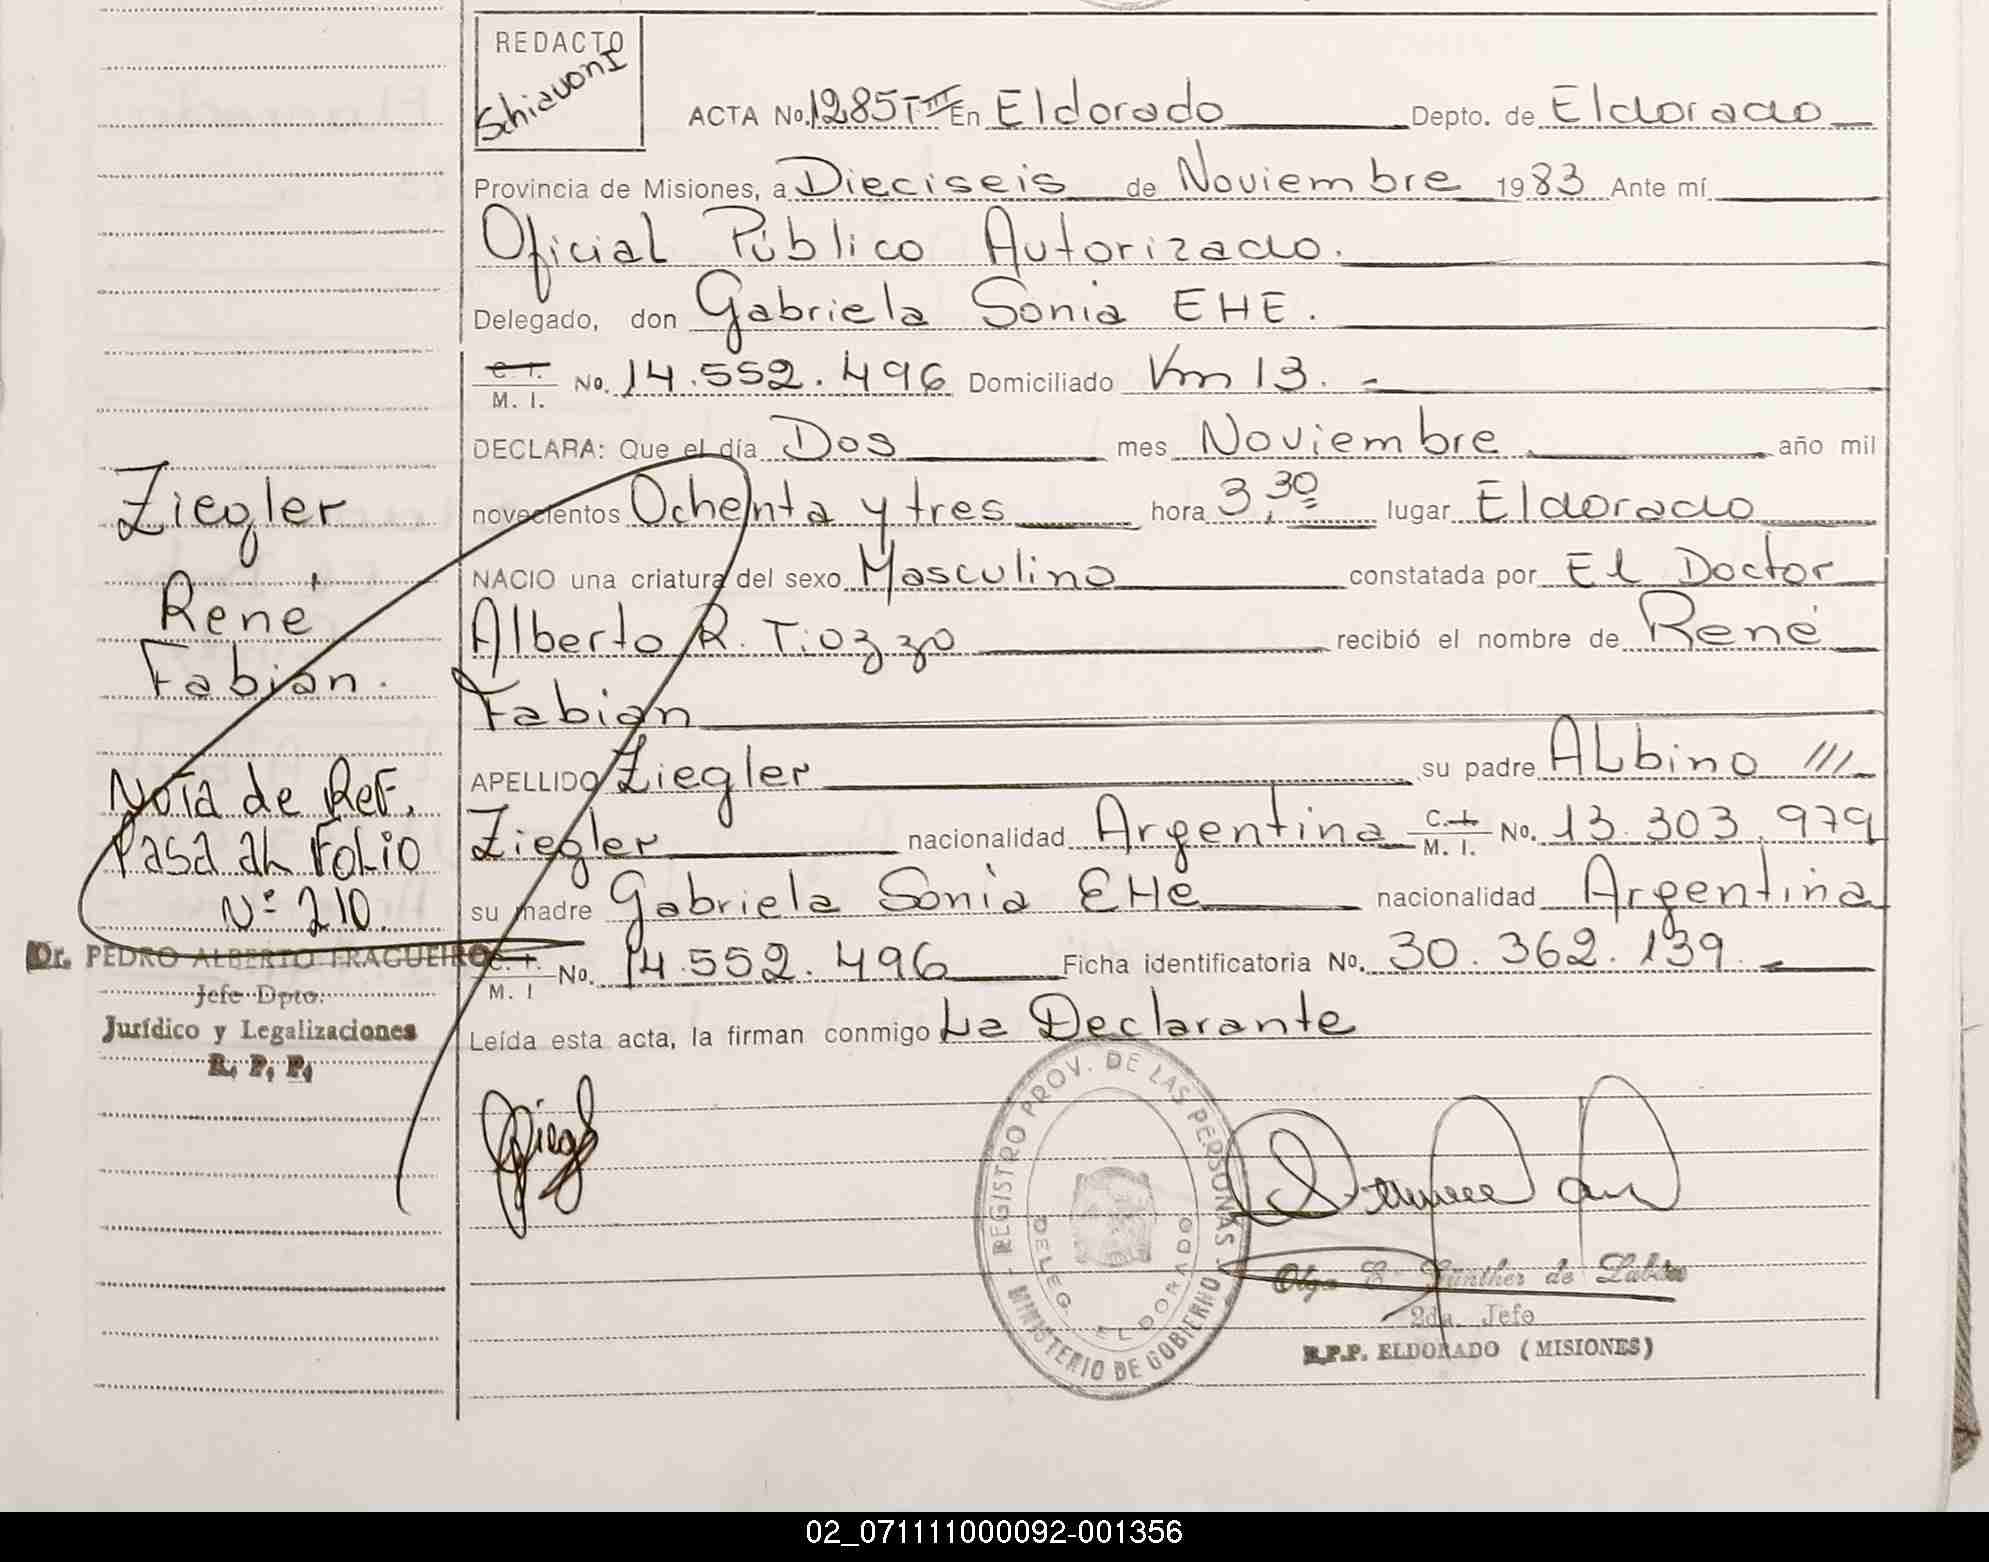 REDACTO
Schiavoni
ACTA No. 1285 T III En Eldorado Depto. de Eldorado
Provincia de Misiones, a Dieciseis de Noviembre 1983 Ante mí
Oficial Público Autorizado.
Delegado, don Gabriela Sonia EHE.
C. I.
M. I. No. 14.552.496 Domiciliado Km 13. -
DECLARA: Que el día Dos mes Noviembre año mil
novecientos Ochenta y tres hora 3,30 lugar Eldorado
NACIO una criatura del sexo Masculino constatada por El Doctor
Alberto R. Tiozzo recibió el nombre de René
Fabian
APELLIDO Ziegler su padre Albino ///
Ziegler nacionalidad Argentina C. I. M. I. No. 13.303.979
su madre Gabriela Sonia EHe nacionalidad Argentina
C. I. M. I No. 14.552.496 Ficha identificatoria No. 30.362.139. -
Leída esta acta, la firman conmigo La Declarante
Ziegler
René
Fabian.
Nota de Ref.
Pasa al Folio
Nº 210.
Dr. PEDRO ALBERTO FRAGUEIRO
Jefe Dpto.
Jurídico y Legalizaciones
R. P. P.
REGISTRO PROV. DE LAS PERSONAS
MINISTERIO DE GOBIERNO
DELEG. ELDORADO
Olga E. Günther de
2da. Jefe
R.P.P. ELDORADO (MISIONES)
02_071111000092-001356